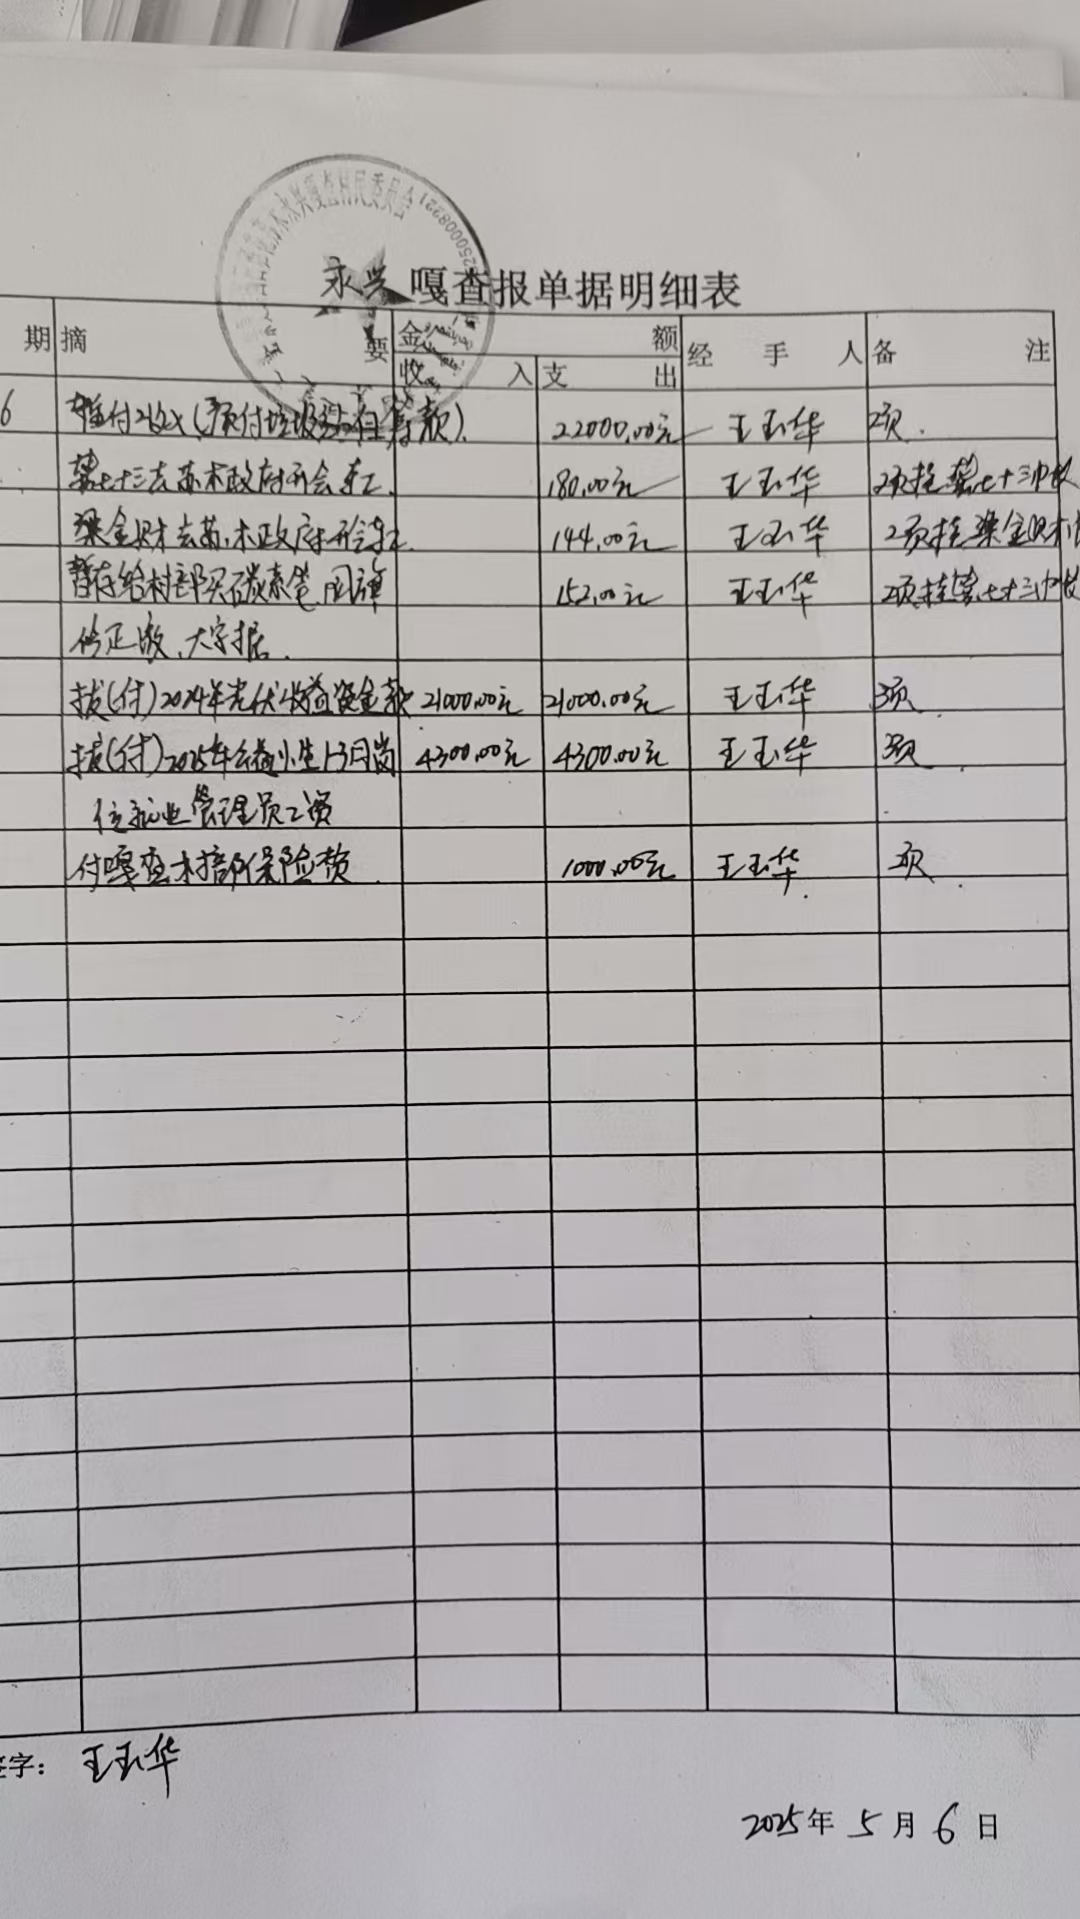 永兴 嘎查报单据明细表
期 摘 要 金 额 经 手 人 备 注
收 入 支 出
6 付 (预付垃圾 款). 22000.00元 王玉华 2项.
七十三去苏木政府开会 180.00元 王玉华 2项挂 七十三
梁金财去苏木政府开会 144.00元 王玉华 2项挂梁金财
暂存给村部买碳素笔.国旗 152.00元 王玉华 2项挂 七十三
修正液、大字报.
拨(付)2024年光伏收益资金款 21000.00元 21000.00元 王玉华 3项
拨(付)2025年公益 1-3月岗 4300.00元 4300.00元 王玉华 3项
位就业管理员工资
付嘎查村部保险费. 1000.00元 王玉华 2项.
签字: 王玉华
2025年 5 月 6 日